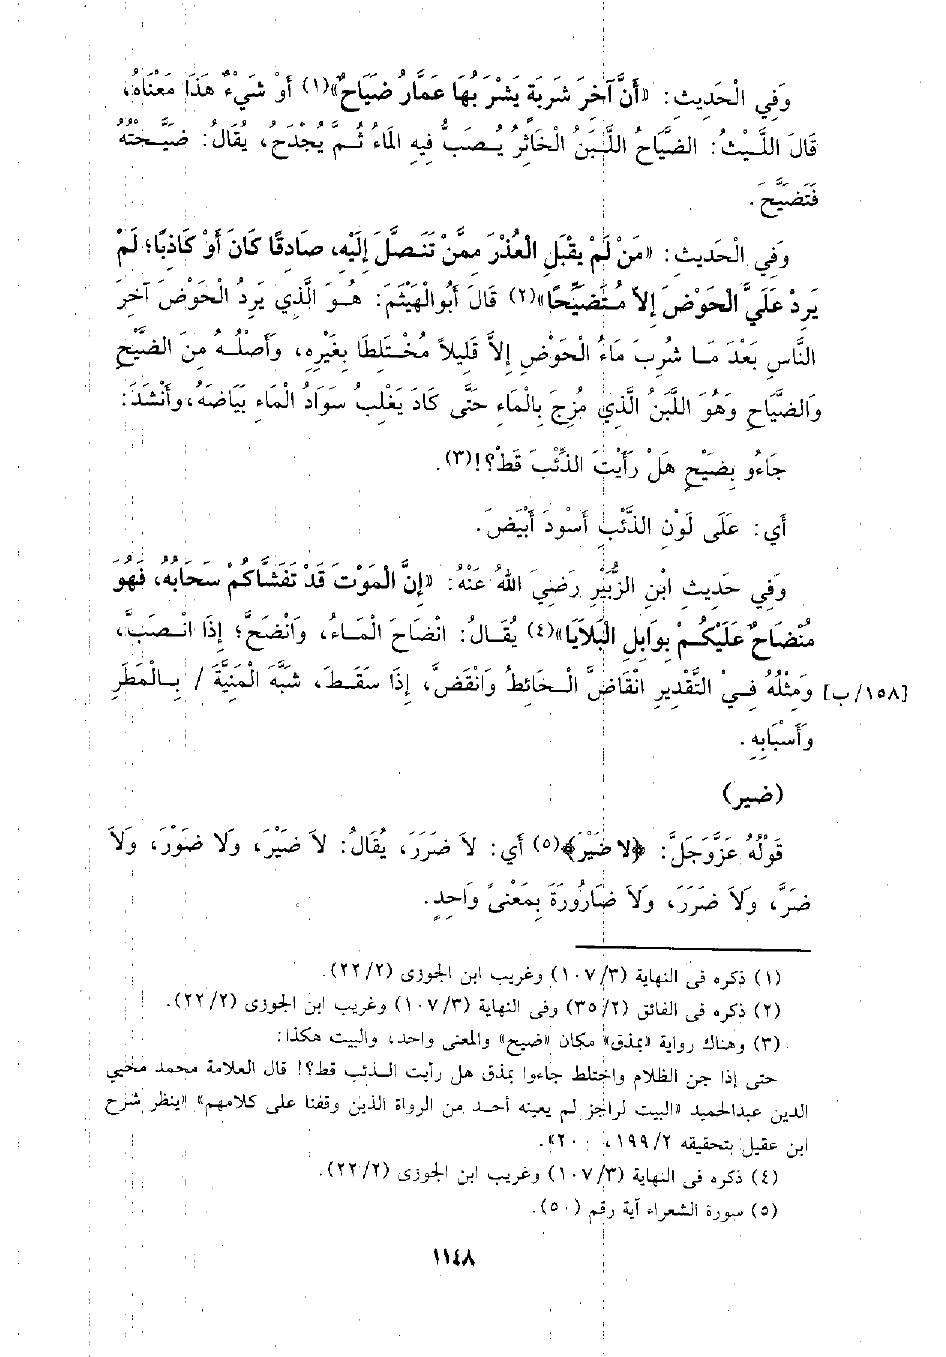 وَفِي الْحَدِيثِ: «أَنَّ آخِرَ شَرْبَةٍ يَشْرَبُهَا عَمَّارُ ضَيَاحٌ»(١) أَوْ شَيْءٌ هَذَا مَعْنَاهُ،
قَالَ اللَّيْثُ: الضَّيَاحُ اللَّبَنُ الْخَاثِرُ يُصَبُّ فِيهِ المَاءُ ثُمَّ يُجْدَحُ، يُقَالُ: ضَيَّحْتُهُ
فَتَضَيَّحَ.
وَفِي الْحَدِيثِ: «مَنْ لَمْ يَقْبَلِ العُذْرَ مِمَّنْ تَنَصَّلَ إِلَيْهِ، صَادِقًا كَانَ أَوْ كَاذِبًا؛ لَمْ
يَرِدْ عَلَيَّ الْحَوْضَ إِلاَّ مُتَضَيِّحًا»(٢) قَالَ أَبُوالهَيْثَمِ: هُوَ الَّذِي يَرِدُ الْحَوْضَ آخِرَ
النَّاسِ بَعْدَ مَا شُرِبَ مَاءُ الْحَوْضِ إِلاَّ قَلِيلاً مُخْتَلِطًا بِغَيْرِهِ، وَأَصْلُهُ مِنَ الضَّيْحِ
وَالضَّيَاحِ وَهُوَ اللَّبَنُ الَّذِي مُزِجَ بِالْمَاءِ حَتَّى كَادَ يَغْلِبُ سَوَادُ الْمَاءِ بَيَاضَهُ، وَأَنْشَدَ:
جَاءُو بِضَيْحٍ هَلْ رَأَيْتَ الذِّئْبَ قَطْ؟!(٣).
أَي: عَلَى لَوْنِ الذِّئْبِ أَسْوَدَ أَبْيَضَ.
وَفِي حَدِيثِ ابْنِ الزُّبَيْرِ رَضِيَ اللهُ عَنْهُ: «إِنَّ الْمَوْتَ قَدْ تَغَشَّاكُمْ سَحَابُهُ، فَهُوَ
مُنْضَاحٌ عَلَيْكُمْ بِوَابِلِ الْبَلاَيَا»(٤) يُقَالُ: انْضَاحَ الْمَاءُ، وَانْضَحَّ؛ إِذَا انْصَبَّ،
[١٥٨/ب] وَمِثْلُهُ فِي التَّقْدِيرِ انْقَاضَّ الْحَائِطُ وَانْقَضَّ، إِذَا سَقَطَ، شَبَّهَ الْمَنِيَّةَ / بِالْمَطَرِ
وَأَسْبَابِهِ.
(ضير)
قَوْلُهُ عَزَّوَجَلَّ: ﴿لا ضَيْرَ﴾(٥) أَي: لاَ ضَرَرَ، يُقَالُ: لاَ ضَيْرَ، وَلاَ ضَوْرَ، وَلاَ
ضَرَّ، وَلاَ ضَرَرَ، وَلاَ ضَارُورَةَ بِمَعْنىً وَاحِدٍ.
(١) ذكره فى النهاية (١٠٧/٣) وغريب ابن الجوزى (٢٢/٢).
(٢) ذكره فى الفائق (٣٥/٢) وفى النهاية (١٠٧/٣) وغريب ابن الجوزى (٢٢/٢).
(٣) وهناك رواية «بمذق» مكان «ضيح» والمعنى واحد، والبيت هكذا:
حتى إذا جن الظلام واختلط جاءوا بمذق هل رأيت الذئب قط؟! قال العلامة محمد محيي
الدين عبدالحميد «البيت لراجز لم يعينه أحد من الرواة الذين وقفنا على كلامهم» «ينظر شرح
ابن عقيل بتحقيقه ١٩٩/٢، ٢٠٠».
(٤) ذكره فى النهاية (١٠٧/٣) وغريب ابن الجوزى (٢٢/٢).
(٥) سورة الشعراء آية رقم (٥٠).
١١٤٨